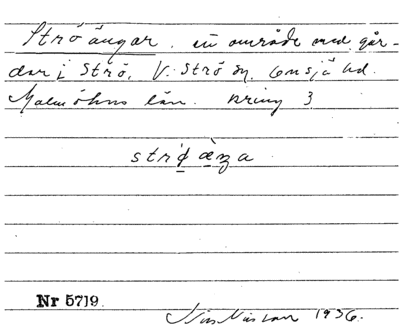 Ströängar. en område med går-
dar i Strö, V. Strö sn. Onsjö hd.
Malmöhus län. kring 3
Nr 5719.
Nils Nilsson 1936.